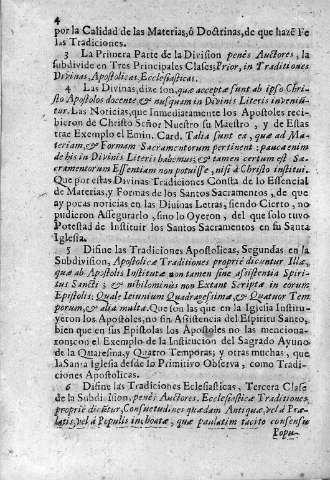 4
por la Calidad de las Materias, ó Doctrinas, de que hazẽ Fe
las Tradiciones.
3 La Primera Parte de la Division penès Auctores, la
subdivide en Tres Principales Clases; Prior, in Traditiones
Divinas, Apostolicas, Ecclesiasticas.
4 Las Divinas, dize son, quæ acceptæ sunt ab ipso Chri-
sto Apostolos docente, & nusquam in Divinis Literis inveniũ-
tur. Las Noticias, que Inmediatamente los Apostoles reci-
bieron de Christo Señor Nuestro su Maestro, y de Estas
trae Exemplo el Emin. Card. Talia sunt ea, quæ ad Ma-
teriam, & Formam Sacramentorum pertinent: pauca enim
de his in Divinis Literis habemus; & tamen certum est Sa-
cramentorum Essentiam non potuisse, nisi à Christo institui.
Que por estas Divinas Tradiciones Consta de lo Essencial
de Materias, y Formas de los Santos Sacramentos, de que
ay pocas noticias en las Divinas Letras, siendo Cierto, no
pudieron Assegurarlo, sino lo Oyeron, del que solo tuvo
Potestad de Instituir los Santos Sacramentos en su Santa
Iglesia.
5 Difine las Tradiciones Apostolicas, Segundas en la
Subdivision, Apostolicæ Traditiones propriè dicuntur Illæ,
quæ ab Apostolis Institutæ non tamen sine assistentia Spiri-
tus Sancti; & nihilominùs non Extant Scriptæ in eorum
Epistolis: Quale Ieiunium Quadragesimæ, & Quatuor Tem-
porum, & alia multa. Que son las que en la Iglesia Institu-
yeron los Apostoles, no sin Assistencia del Espiritu Santo,
bien que en sus Epistolas los Apostoles no las menciona-
ron; con el Exemplo de la Institucion del Sagrado Ayuno
de la Quaresma, y Quatro Temporas, y otras muchas, que
la Santa Iglesia desde lo Primitivo Observa, como Tradi-
ciones Apostolicas.
6 Difine las Tradiciones Eclesiasticas, Tercera Clase
de la Subdivision, penès Auctores. Ecclesiasticæ Traditiones
propriè dicũtur, Consuetudines quædam Antiquæ, vel à Præ-
latis, vel à Populis inchoatæ, quæ paulatim tacito consensu
Popu-